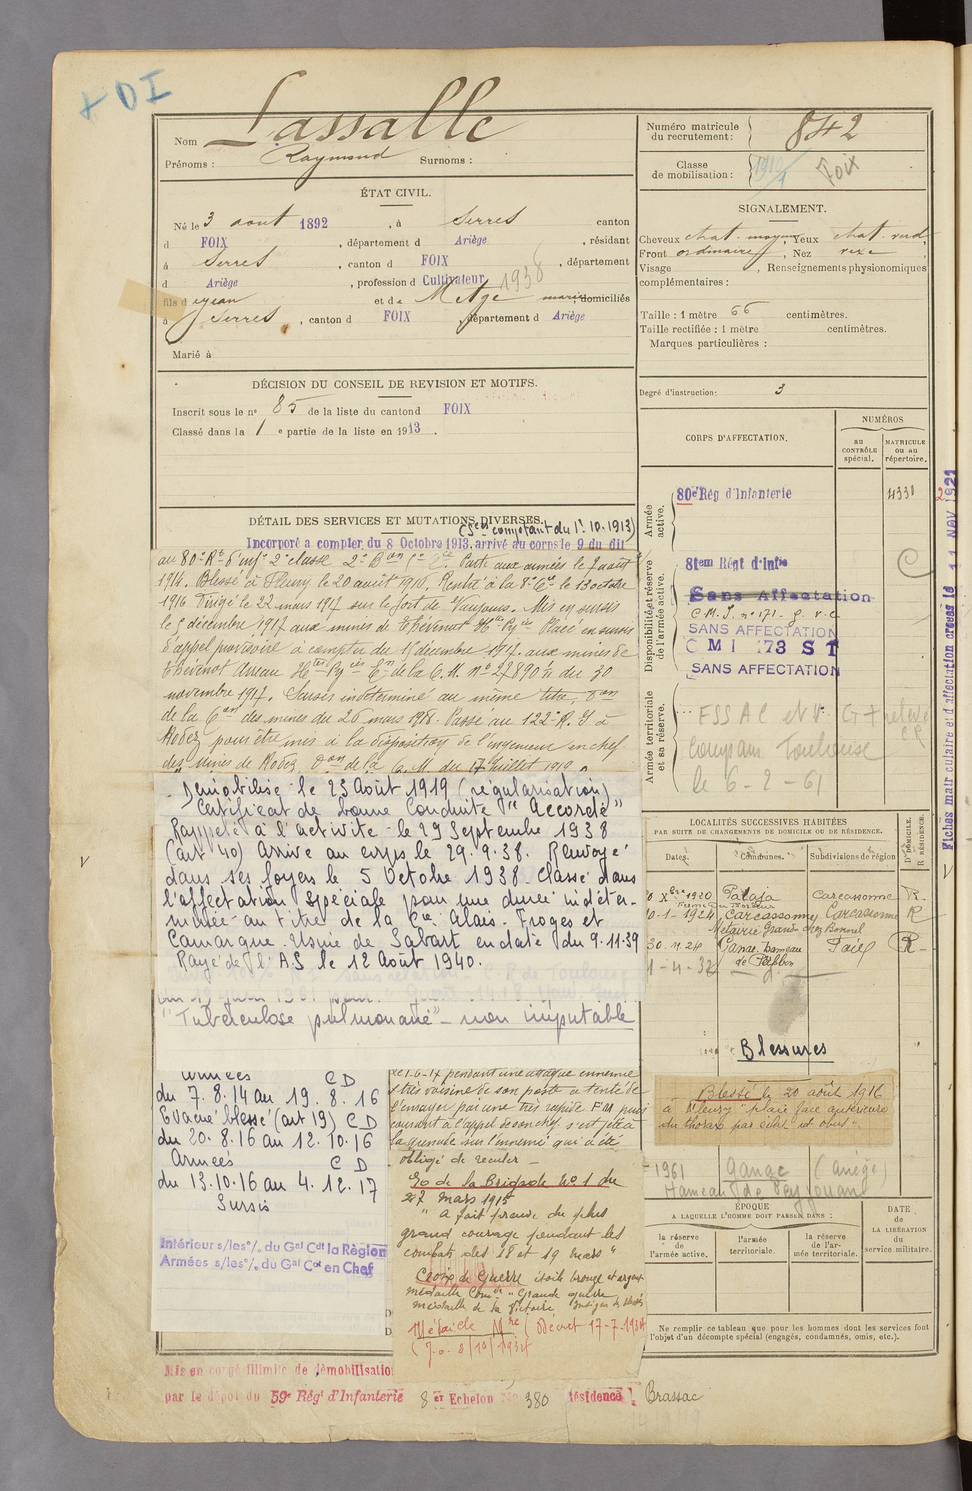 + DI
Nom Lassalle
Prénoms : Raymond Surnoms :
Numéro matricule du recrutement : 842
Classe de mobilisation : Foix
ÉTAT CIVIL.
Né le 3 août 1892, à Serres canton
d FOIX, département d Ariège, résidant
à Serres, canton d FOIX, département
d Ariège, profession d Cultivateur 1936
fils d et de domiciliés
à Serres, canton d FOIX, département d Ariège
Marié à
SIGNALEMENT.
Cheveux chat. moyen, Yeux chat. verd.
Front ordinaire, Nez
Visage , Renseignements physionomiques
complémentaires :
Taille : 1 mètre 66 centimètres.
Taille rectifiée : 1 mètre centimètres.
Marques particulières :
Degré d'instruction : 3
DÉCISION DU CONSEIL DE REVISION ET MOTIFS.
Inscrit sous le n° 85 de la liste du canton d FOIX
Classé dans la 1e partie de la liste en 1913.
CORPS D'AFFECTATION.
NUMÉROS
au CONTRÔLE spécial.
MATRICULE ou au répertoire.
Armée active.
80e Rég d'Infanterie
Disponibilité et réserve de l'armée active.
81em Régt d'Inf'ie
Sans Affectation
C M. I. n° 171
SANS AFFECTATION
C M I 173 S T
SANS AFFECTATION
Armée territoriale et sa réserve.
Toulouse
le 6-2-61
Fiches matriculaire et d'affectation créées le 11 NOV 1921
DÉTAIL DES SERVICES ET MUTATIONS DIVERSES.
(Ses comptant du 1r. 10. 1913)
Incorporé à compter du 8 Octobre 1913. arrivé au corps le 9 du dit
au 80e Rt d'infie 2e classe Parti aux armées le 7 août
1914. Blessé à Fleury le 20 août 1916. Rentré à la 8e Cie le 13 octobre
1916 Dirigé le 22 mars 1917 sur le fort de Vaujours. Mis en sursis
le 5 décembre 1917 aux mines de Thévenot Hte Pyies Placé en sursis
d'appel provisoire à compter du 1r décembre 1917 aux mines de
novembre 1917. Sursis indéterminé au même titre,
de la Con des mines du 26 mars 1918. Passé au 122e R. I à
Rodez pour être mis à la disposition de l'ingénieur en chef
des mines de Rodez Don de la G. M. du 17 Juillet 1919.
Démobilisé le 23 Août 1919 (régularisation)
Certificat de bonne Conduite "Accordé"
Rappelé à l'activité le 29 Septembre 1938
(art 40) Arrivé au corps le 29.9.38. Renvoyé
dans ses foyers le 5 Octobre 1938. Classé dans
l'affectation spéciale pour une durée indéter-
minée au titre de la Cie Alais. Froges et
Camargue. Usine de Sabart en date du 9.11.39
Rayé de l'A.S le 12 Août 1940.
"Tuberculose pulmonaire" - non imputable
LOCALITÉS SUCCESSIVES HABITÉES
PAR SUITE DE CHANGEMENTS DE DOMICILE OU DE RÉSIDENCE.
Dates. Communes. Subdivisions de région D. DOMICILE. R. RÉSIDENCE.
1920 Palaja Carcassonne R.
10-1-1924 Carcassonne Carcassonne R
Métairie Grande chez Bonnel
30.11.26 Ganac. hameau Foix R
1-4-32
Blessures
Blessé le 20 août 1916
à Fleury "plaie face antérieure
du thorax par éclat d'obus".
1961 Ganac (Ariège)
Hameau de
Armées C D
du 7.8.14 au 19.8.16
Evacué blessé (art 19) C D
du 20.8.16 au 12.10.16
Armées C D
du 13.10.16 au 4.12.17
Sursis
Intérieur s/les °/. du Gal Cdt la Région
Armées s/les °/. du Gal Cdt en Chef
le 1-6-17 pendant une attaque ennemie
très voisine de son poste a tenté de
l'enrayer par une très rapide F.M puis
courant à l'appel de son chef s'est jeté à
la grenade sur l'ennemi qui a été
obligé de reculer -
de la Brigade No 1 du
27 mars 1915
"a fait preuve du plus
grand courage pendant les
combats des 18 et 19 mars"
Croix de Guerre étoile bronze et argent
médaille Comve "Grande guerre"
médaille de la Victoire Insigne des blessés
Médaille Mre (Décret 17-7-1934
(J.O. 8/10/1934
ÉPOQUE
A LAQUELLE L'HOMME DOIT PASSER DANS :
la réserve de l'armée active.
l'armée territoriale.
la réserve de l'armée territoriale.
DATE de LA LIBÉRATION du service militaire.
Ne remplir ce tableau que pour les hommes dont les services font
l'objet d'un décompte spécial (engagés, condamnés, omis, etc.).
Mis en congé illimité de démobilisation
par le dépôt du 59e Régt d'Infanterie 8 er Echelon No 380 résidence Brassac